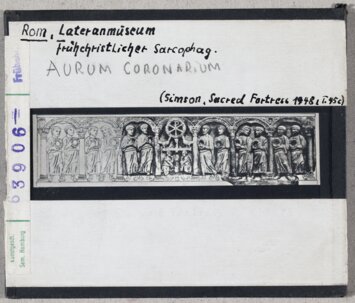 Rom, Lateranmuseum
Frühchristlicher Sarcophag.
AURUM CORONARIUM
(Simson, Sacred Fortress 1948, T. 45c)
Frühchr
63906
kunstgesch.
Sem. Hamburg